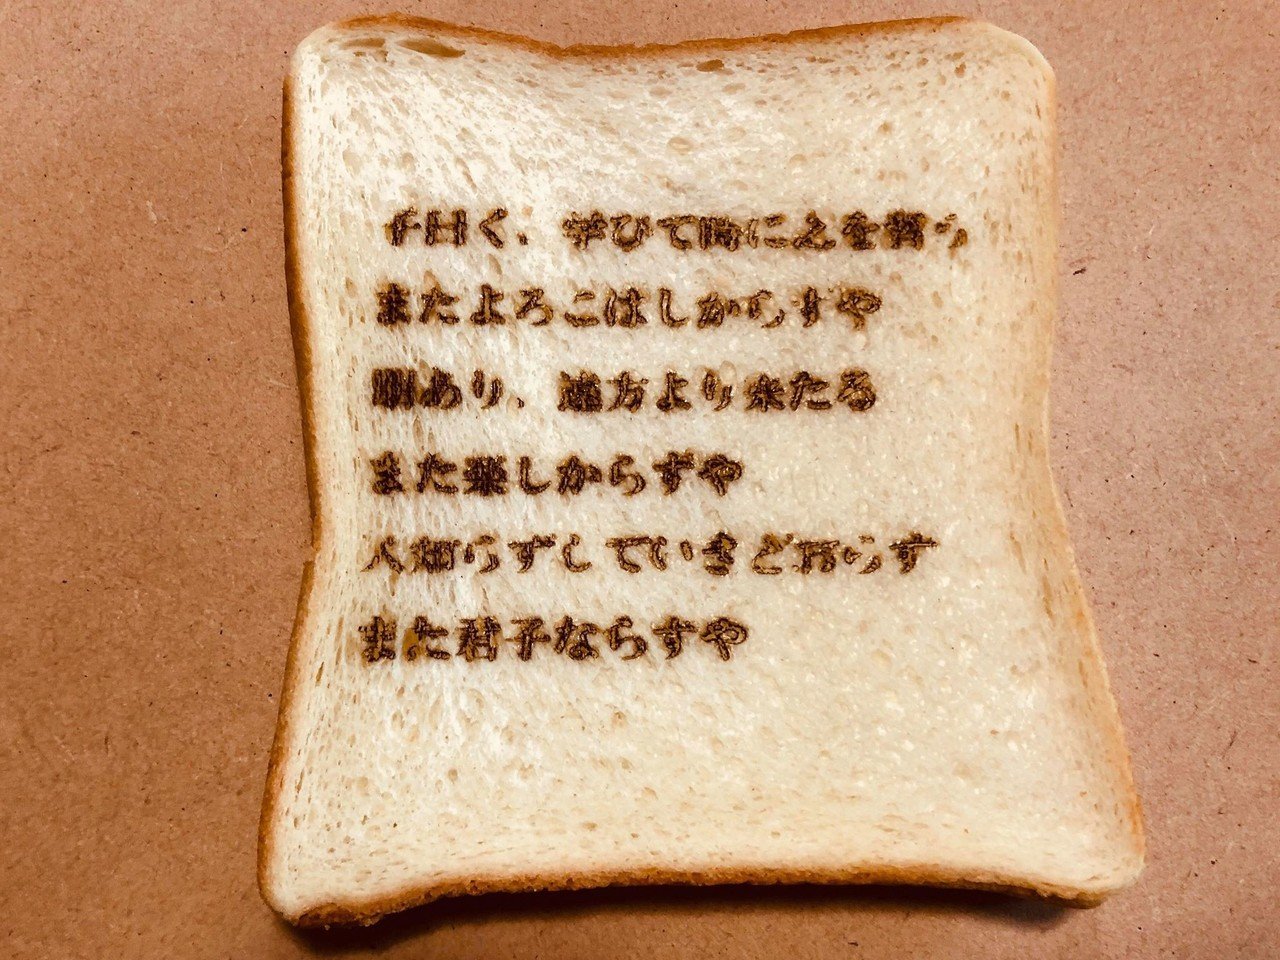 子曰く、学びて時に之を習う
またよろこばしからずや
朋あり、遠方より来たる
また楽しからずや
人知らずしていきどおらず
また君子ならずや